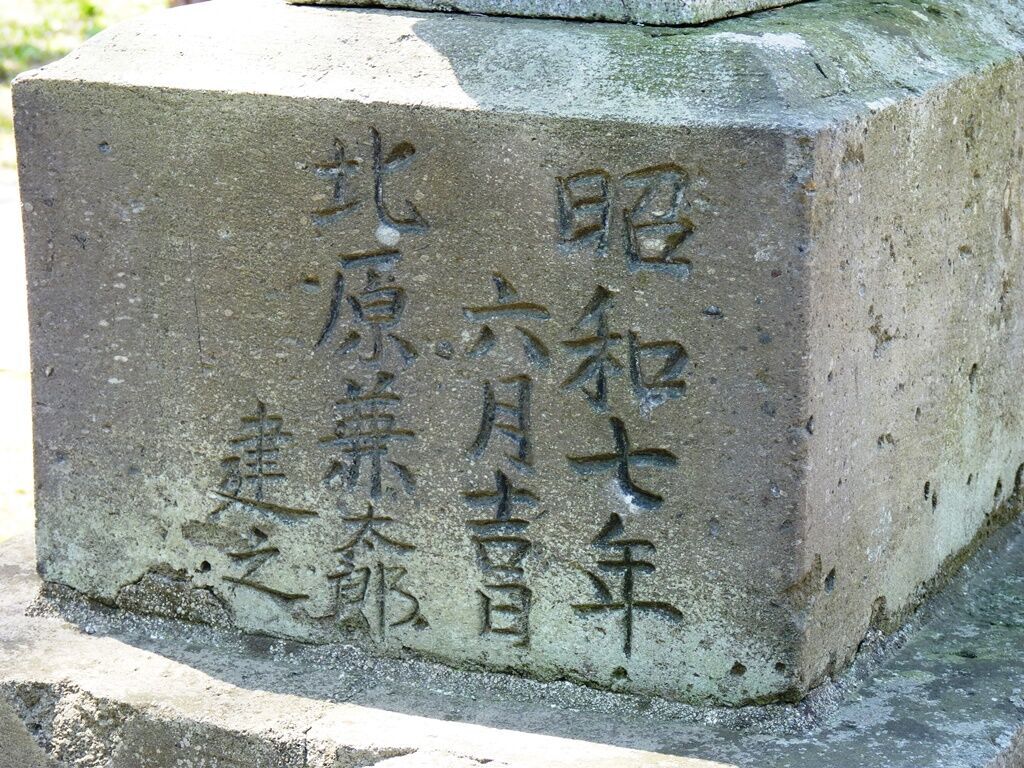 昭和七年
六月吉日
北原兼太郎
建之